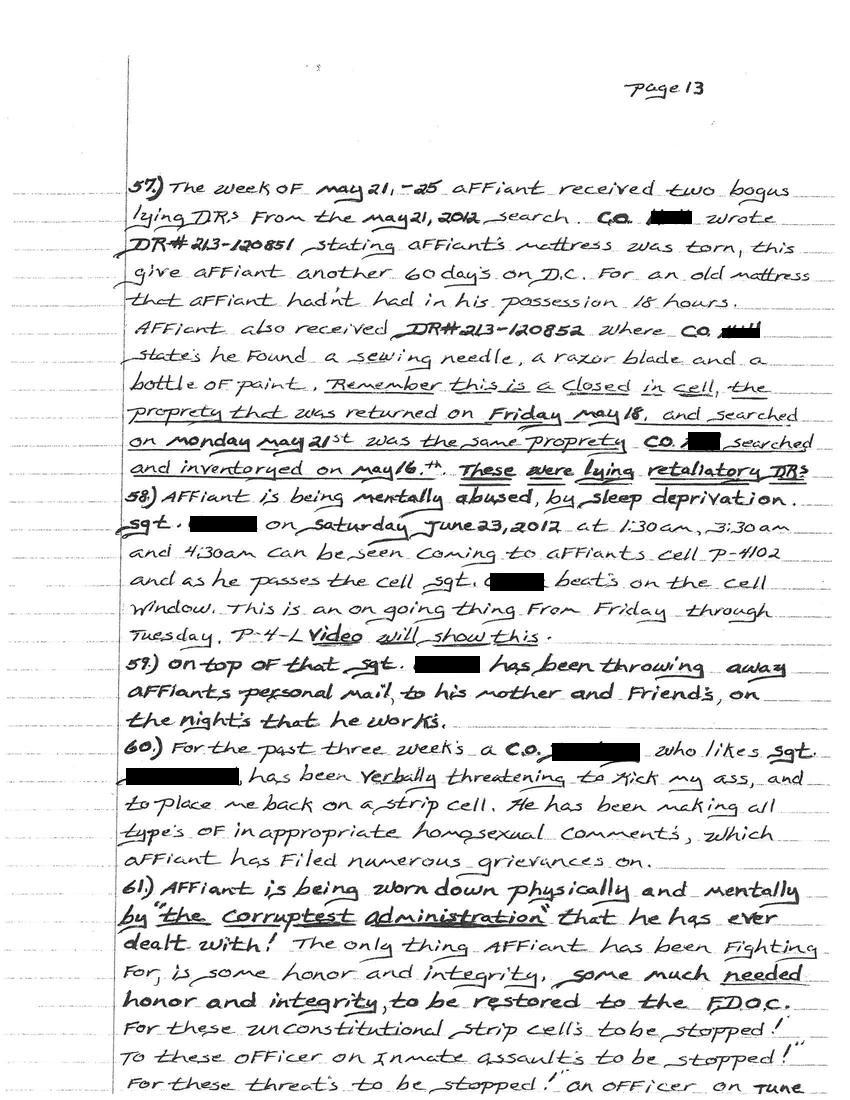 page 13
57.) The week of may 21, -25 affiant received two bogus
lying DRs from the may 21, 2012 search. C.O. wrote
DR# 213-120851 stating affiant's mattress was torn, this
give affiant another 60 day's on D.C. For an old mattress
that affiant hadn't had in his possession 18 hours.
Affiant also received DR# 213-120852 where CO.
state's he found a sewing needle, a razor blade and a
bottle of paint. Remember this is a closed in cell, the
proprety that was returned on Friday may 18, and searched
on monday may 21st was the same proprety C.O. searched
and inventoryed on may 16.th. These were lying retaliatory DRs
58.) Affiant is being mentally abused, by sleep deprivation.
sgt. on saturday June 23, 2012 at 1:30am, 3:30am
and 4:30am can be seen coming to affiants cell P-4102
and as he passes the cell sgt. beat's on the cell
window. This is an on going thing from Friday through
Tuesday. P-4-L Video will show this.
59.) on top of that sgt. has been throwing away
affiants personal mail, to his mother and friend's, on
the night's that he work's.
60.) For the past three week's a C.O. who likes sgt.
, has been verbally threatening to kick my ass, and
to place me back on a strip cell. He has been making all
type's of inappropriate homosexual comment's, which
affiant has filed numerous grievances on.
61.) Affiant is being worn down physically and mentally
by "the corruptest administration" that he has ever
dealt with! The only thing Affiant has been fighting
for, is some honor and integrity, some much needed
honor and integrity, to be restored to the F.D.O.C.
For these unconstitutional strip cell's to be stopped!
To these officer on inmate assault's to be stopped!"
For these threat's to be stopped!" an officer on June